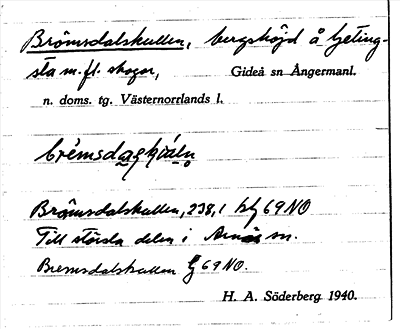 Brömsdalskullen, bergshöjd å Geting-
sta m. fl. skogar, Gideå sn Ångermanl.
n. doms. tg. Västernorrlands l.
Brömsdalskullen, 238,1 hbl 69 NO
Till största delen i Arnäs sn.
Bremsdalskullen G 69 NO.
H. A. Söderberg 1940.